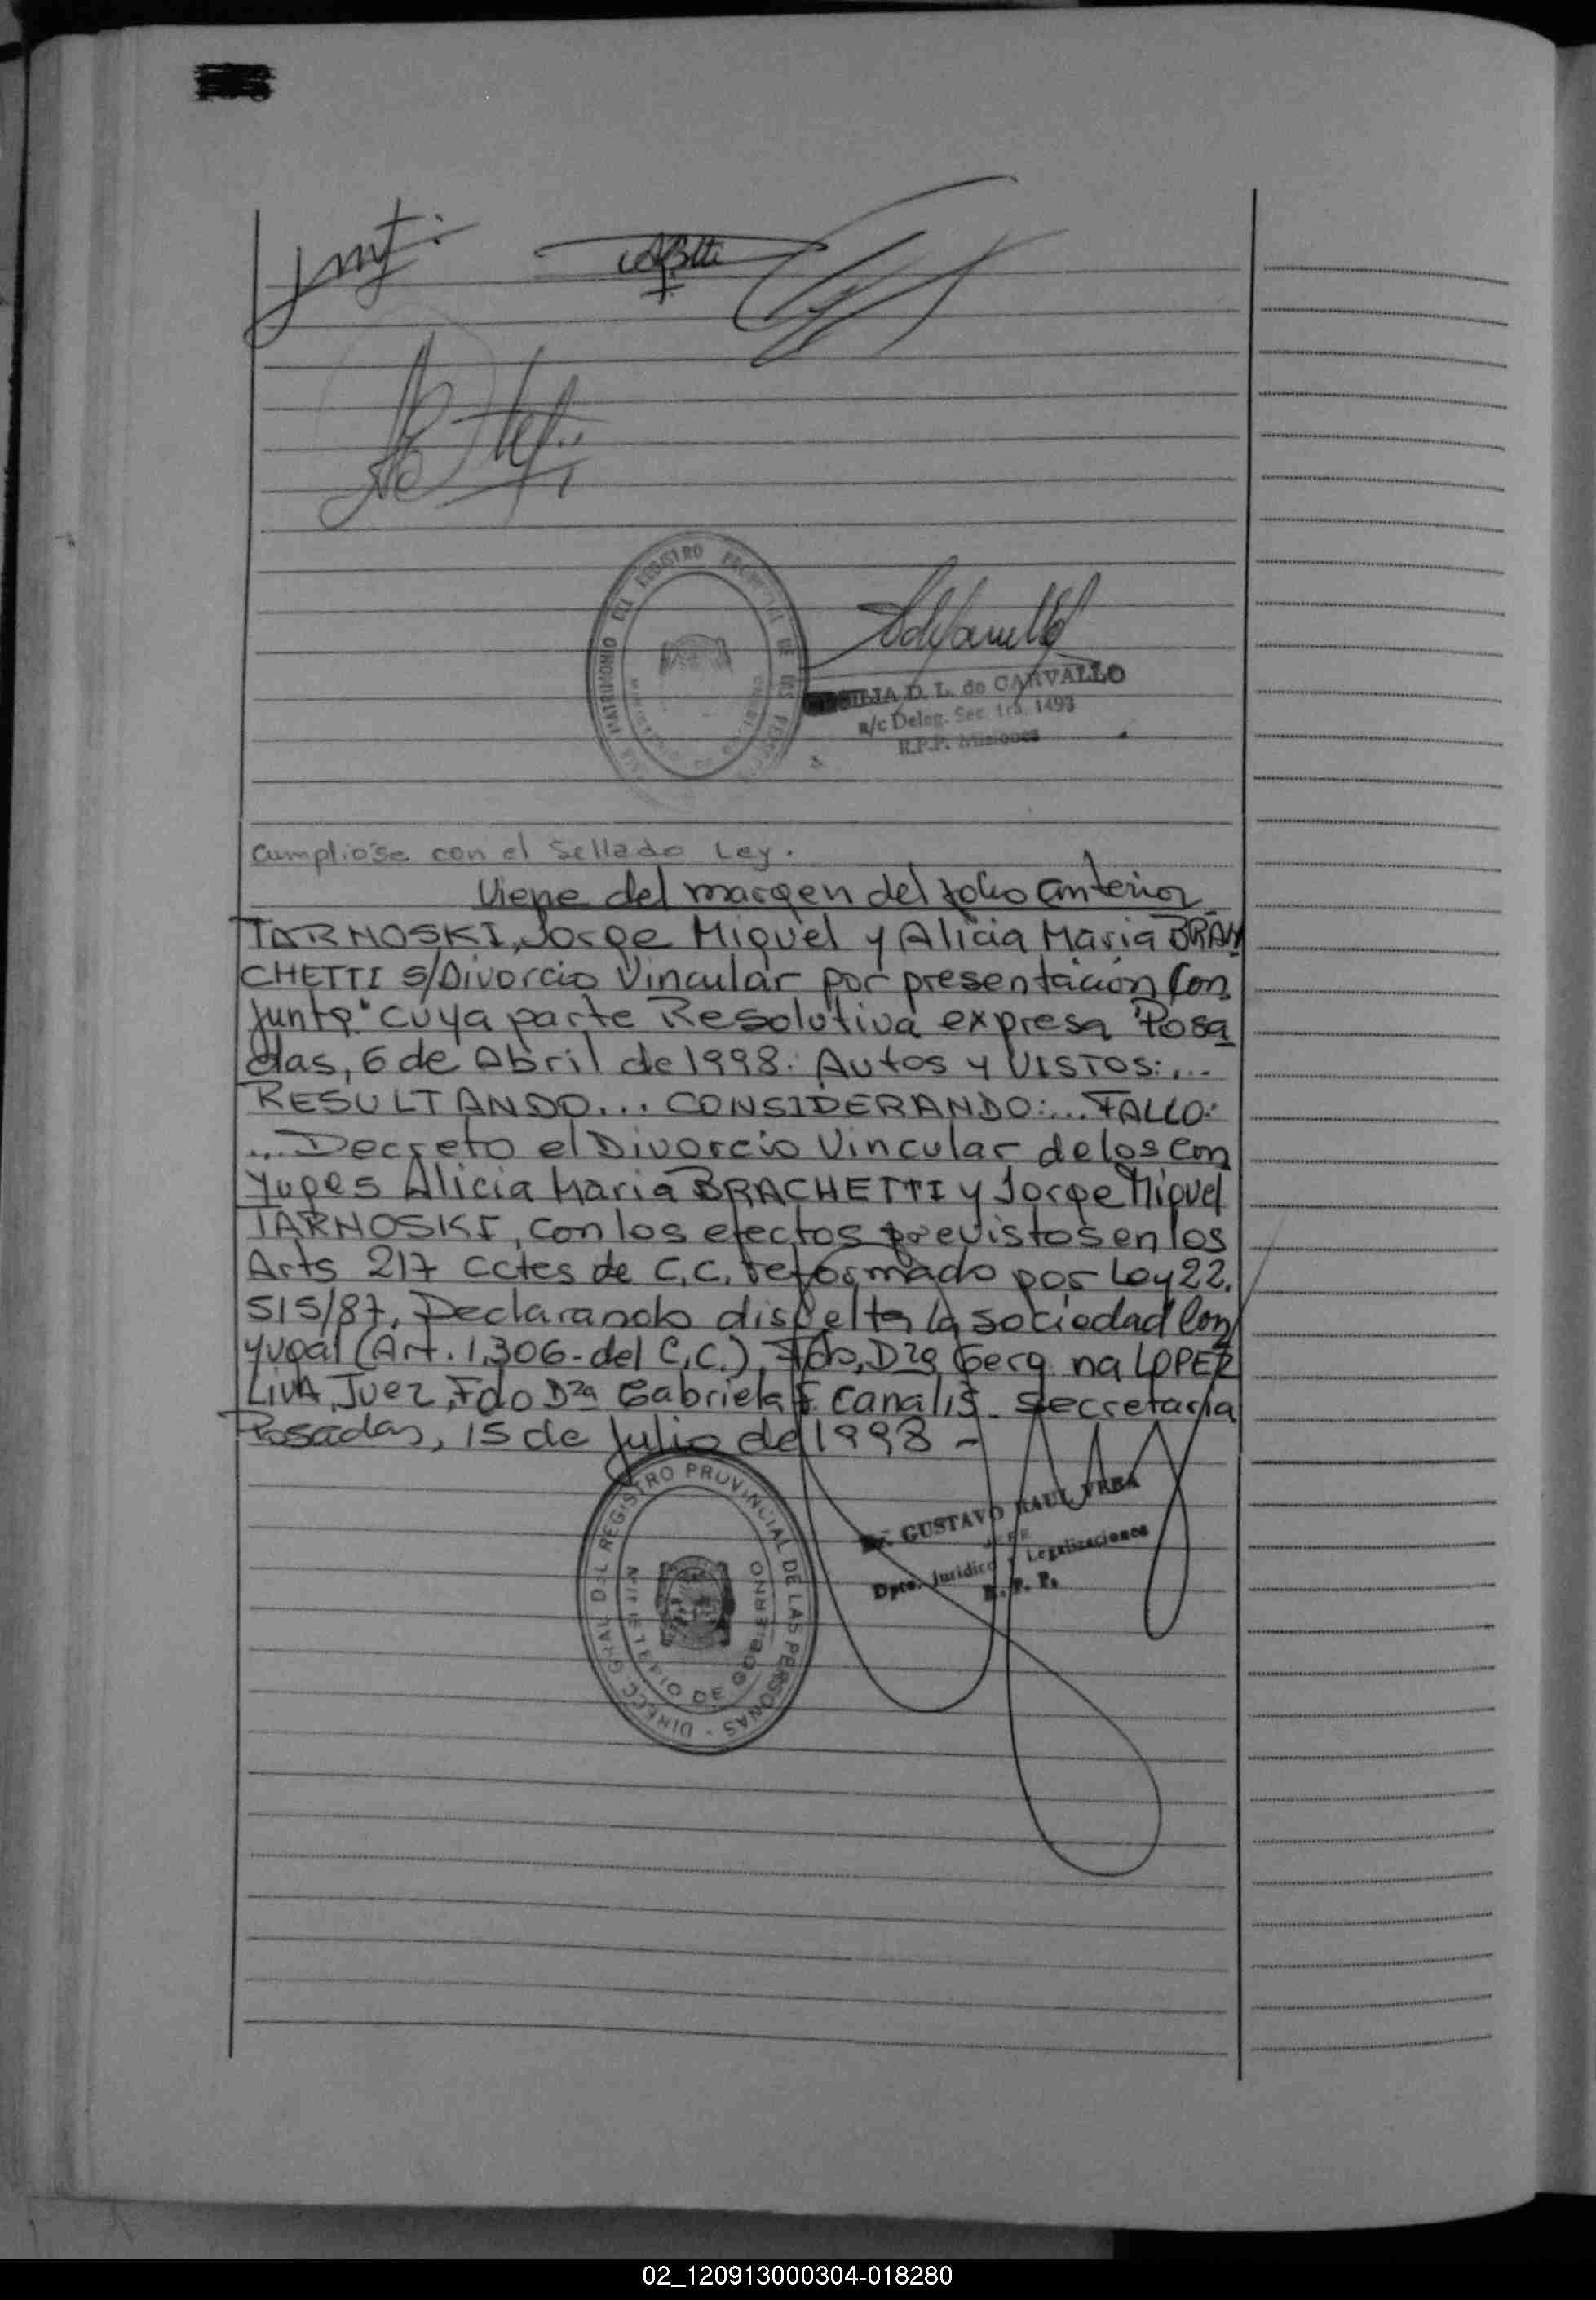 Cumpliose con el Sellado Ley.
Viene del margen del folio anterior
TARNOSKI, Jorge Miguel y Alicia Maria BRAN
CHETTI S/Divorcio Vincular por presentación Con
junta" cuya parte Resolutiva expresa "Posa
das, 6 de Abril de 1998: Autos y VISTOS:...
RESULTANDO... CONSIDERANDO:... FALLO:
... Decreto el Divorcio Vincular de los Con
yuges Alicia Maria BRACHETTI y Jorge Miguel
TARNOSKI, con los efectos previstos en los
Arts 217 cctes de C.C. reformado por Ley 22.
515/87, Declarando disuelta la sociedad Con
yugal (Art. 1.306 - del C.C.), Fdo, Dra na LOPEZ
LIVA, Juez, Fdo Dra Gabriela F. Canalis - Secretaria
Posadas, 15 de Julio de 1998 -
D. L. de CARVALLO
a/c Deleg. Sec. 1ra. 1493
R.P.P. Misiones
Dr. GUSTAVO RAUL VERA
JEFE
Dpto. Juridico y Legalizaciones
R. P. P.
DIRECC. GRAL. DEL REGISTRO PROVINCIAL DE LAS PERSONAS -
MINISTERIO DE GOBIERNO
02_120913000304-018280